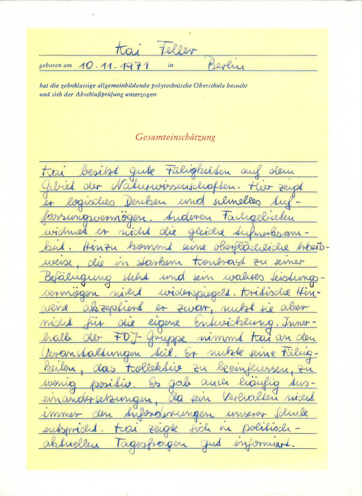 Kai Feller
geboren am 10.11.1971 in Berlin
hat die zehnklassige allgemeinbildende polytechnische Oberschule besucht
und sich der Abschlußprüfung unterzogen
Gesamteinschätzung
Kai besitzt gute Fähigkeiten auf dem
Gebiet der Naturwissenschaften. Hier zeigt
er logisches Denken und schnelles Auf-
fassungsvermögen. Anderen Fachgebieten
widmet er nicht die gleiche Aufmerksam-
keit. Hinzu kommt seine oberflächliche Arbeits-
weise, die in starkem Kontrast zu seiner
Befähigung steht und sein wahres Leistungs-
vermögen nicht widerspiegelt. Kritische Hin-
weise akzeptiert er zwar, nutzt sie aber
nicht für die eigene Entwicklung. Inner-
halb der FDJ-Gruppe nimmt Kai an den
Veranstaltungen teil. Er nutzte seine Fähig-
keiten, das Kollektiv zu beeinflussen, zu
wenig positiv. Es gab auch häufig Aus-
einandersetzungen, da sein Verhalten nicht
immer den Anforderungen unserer Schule
entspricht. Kai zeigte sich in politisch-
aktuellen Tagesfragen gut informiert.